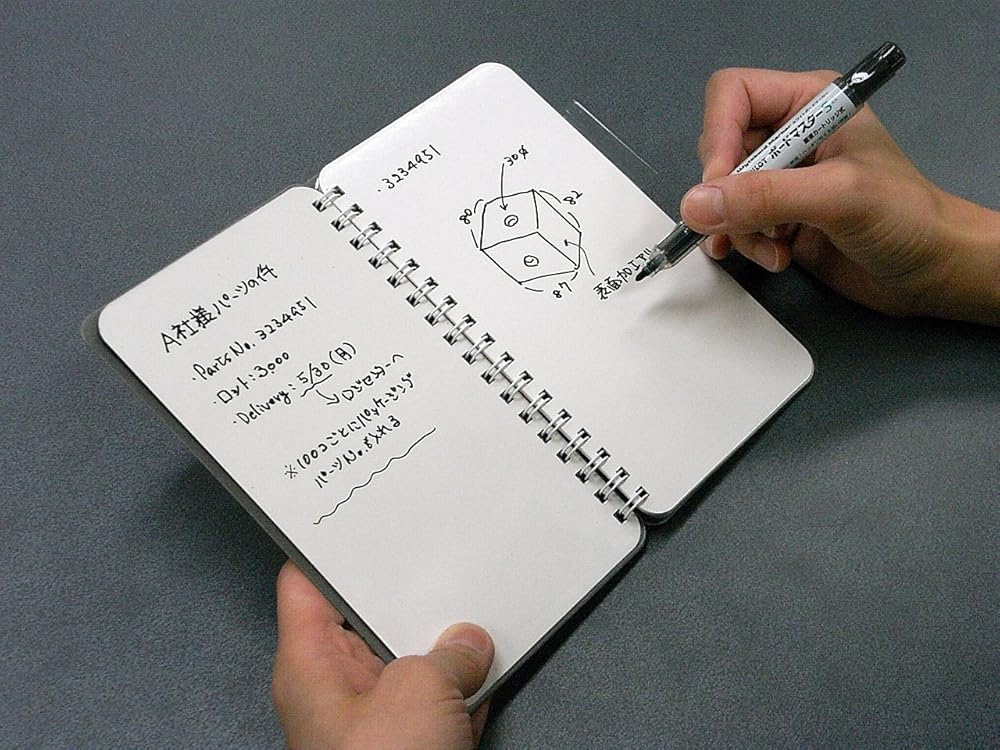 A社様パーツの件
・Parts No. 3234951
・ロット：3000
・Delivery：5/30(月)
↳ロジセスターへ
※100コごとにパッケージング
パーツNo.も入れる
・3234951
30φ
80
82
87
表面加工アリ
PILOT ボードマスターS